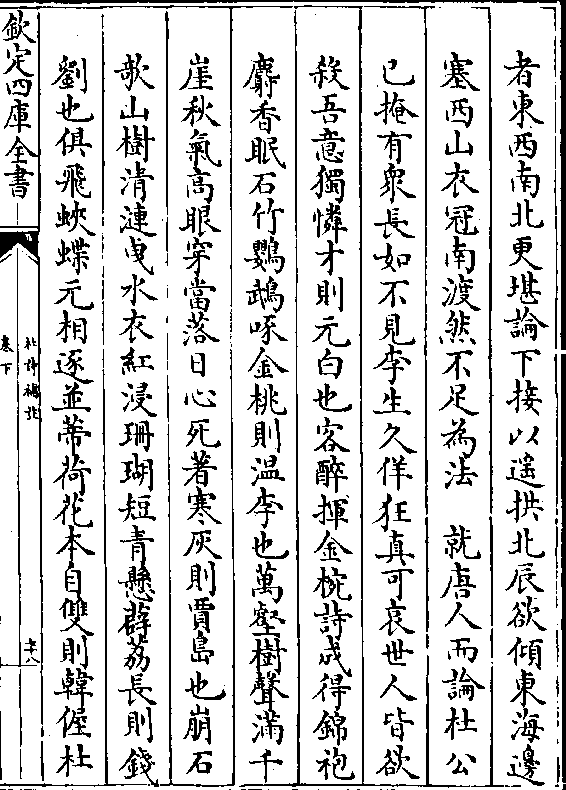 者東西南北更堪論下接以遥拱北辰欲傾東海邊
塞西山衣冠南渡然不足為法　就唐人而論杜公
已掩有衆長如不見李生久佯狂真可哀世人皆欲
殺吾意獨憐才則元白也客醉揮金椀詩成得錦袍
麝香眠石竹鸚鵡啄金桃則温李也萬壑樹聲滿千
崖秋氣高眼穿當落日心死著寒灰則賈島也崩石
欹山樹清漣曳水衣紅浸珊瑚短青懸薜荔長則錢
劉也俱飛蛺蝶元相逐並蒂荷花本自雙則韓偓杜
欽定四庫全書
卷下